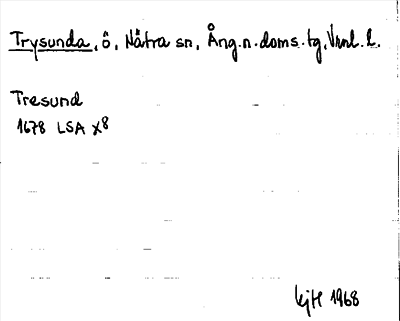 Trysunda, ö, Nätra sn, Ång.n.doms.tg, Vnrl. l.
Tresund
1678 LSA X8
LejH 1968